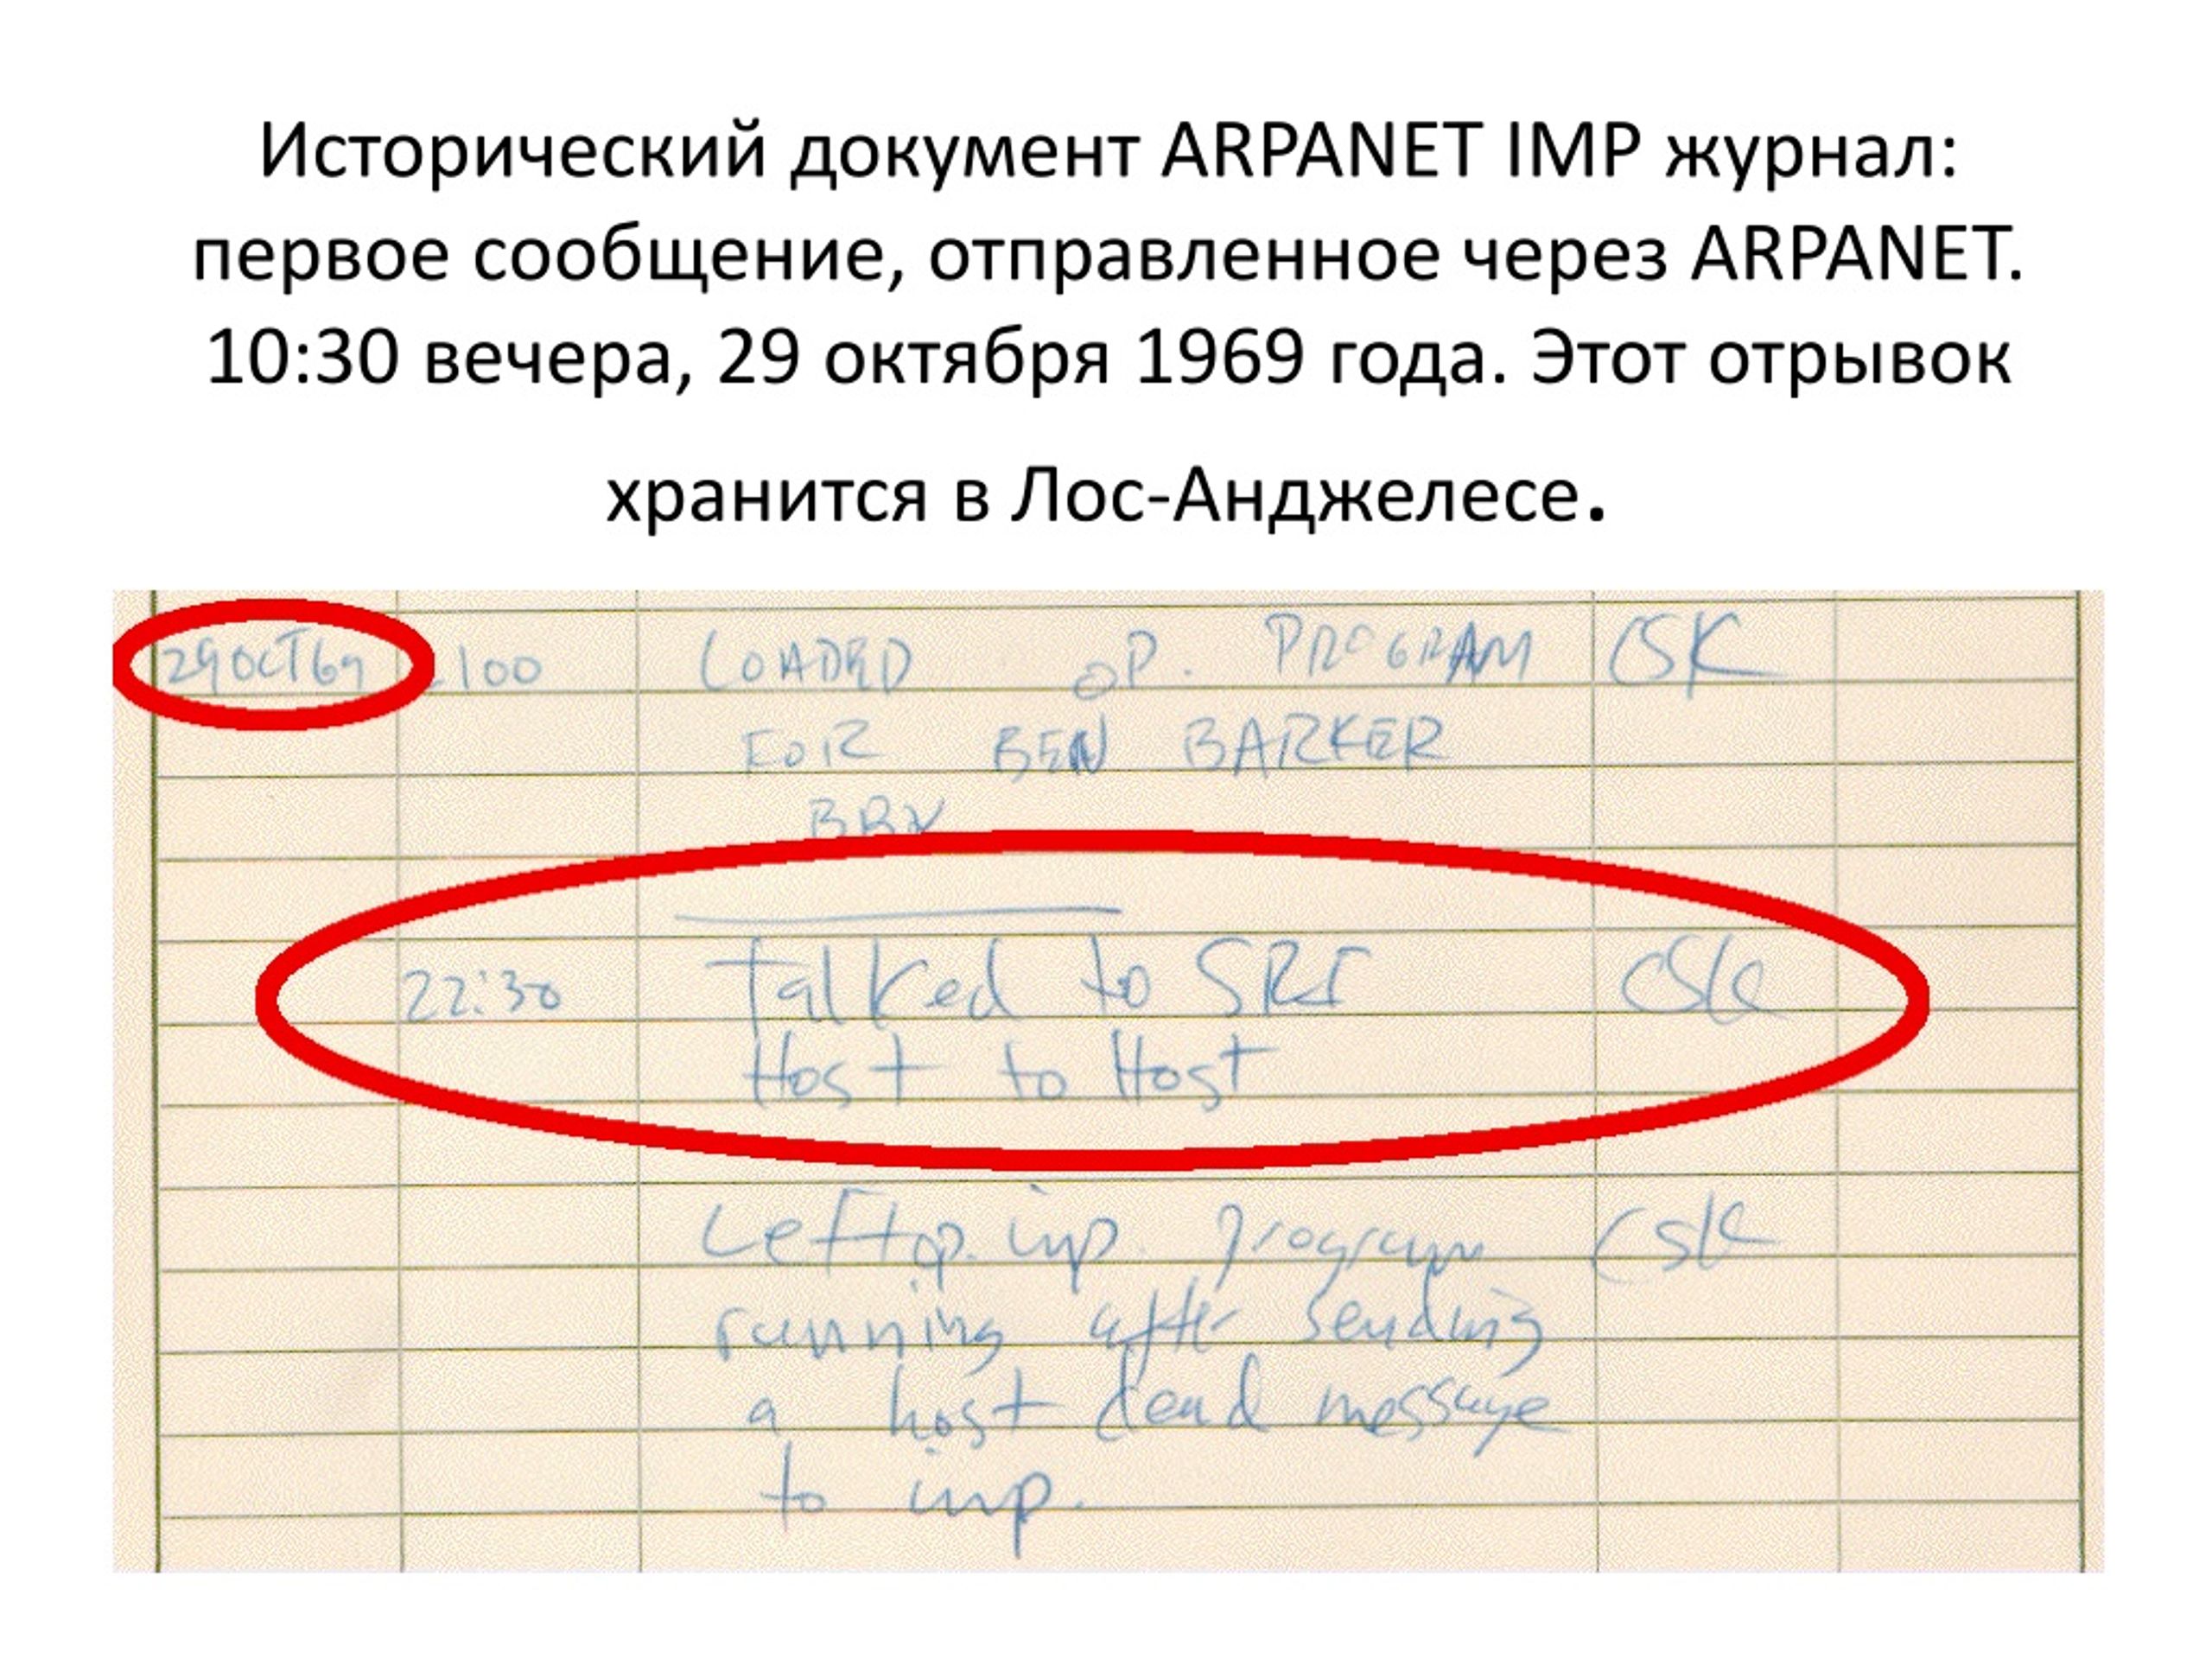 Исторический документ ARPANET IMP журнал:
первое сообщение, отправленное через ARPANET.
10:30 вечера, 29 октября 1969 года. Этот отрывок
хранится в Лос-Анджелесе.
29OCT69 2100 LOADED OP. PROGRAM CSK
FOR BEN BARKER
BBN
22:30 Talked to SRI CSK
Host to Host
Left op. imp. program CSK
running after sending
a host dead message
to imp.